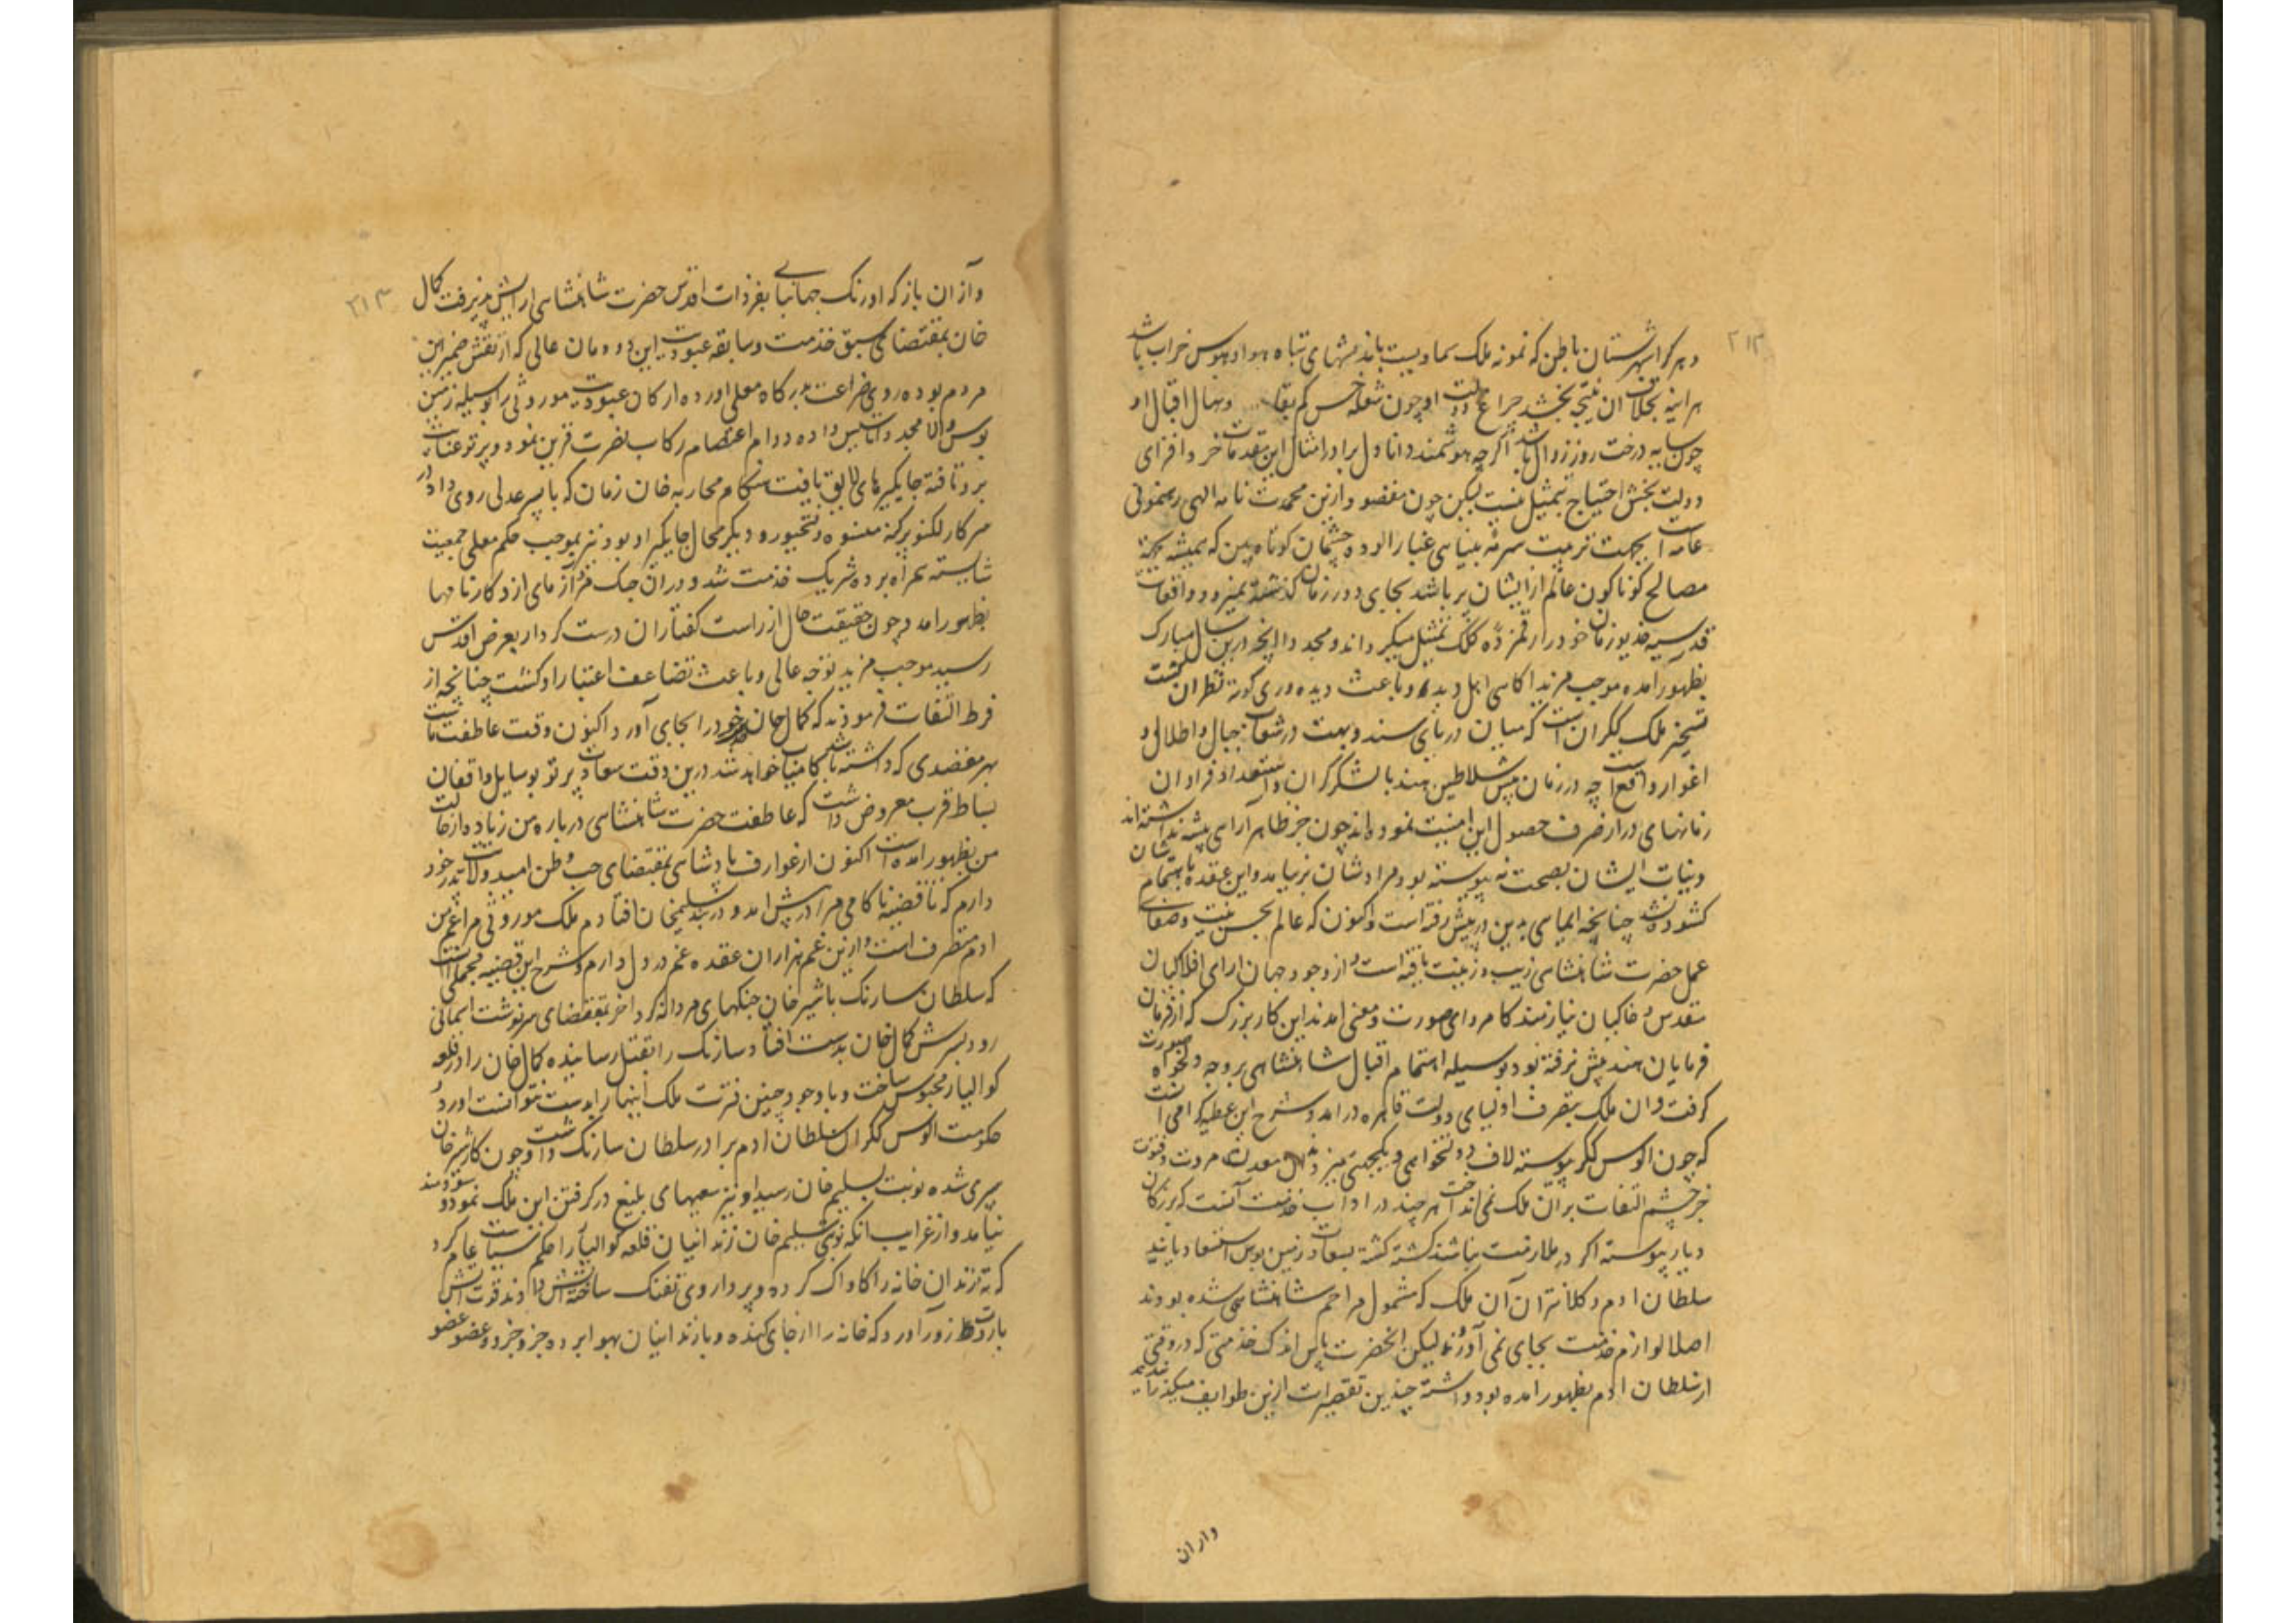 ۲۱۳
و هر کرا شهرستان باطن که نمونه ملک سماویست باندیشهای تباه هوا و هوس خراب باشد
هراینه بخلاف ان نتیجه بخشد چراغ دولت او چون شعله خس کم بقا و نهال اقبال او
چون سایه درخت روز زوال باشد اگرچه هوشمند دانا دل را در امثال این مقدمات خرد افزای
دولت بخش احتیاج تمثیل نیست لیکن چون مقصود ازین محمدت نامه الهی رهنمونی
عامه است بجهت تربیت سرمه بینایی غبار الوده چشمان کوتاه بین که همیشه بجهة
مصالح کوناکون عالم از ایشان پر باشد بجای دور و زمان کذشته نمیرود و واقعات
قدسیه خدیو زمان خود را رقمزده کلک تمثیل میکرداند و مجددا انچه درین سال مبارک
بظهور امده موجب مزید اکاهی اهل دید و باعث دیده وری کوته نظران کشت
تسخیر ملک ککران است که میان دریای سند و بهت در شعاب جبال و اطلال و
اغوار واقع است چه در زمان پیش سلاطین هند با لشکر کران و استعداد فراوان
زمانهای دراز صرف حصول این امنیت نموده اند چون جز ظاهر آرایی پیشه نداشته اند
و نیات ایشان بصحت نه پیوسته بود مرادشان بر نیامد و این عقده باهتمام شان
کشوده نشد چنانچه ایمایی بدین در پیش رفته است و اکنون که عالم بحسن نیت و صفای
عمل حضرت شاهنشاهی زیب و زینت یافته است و از وجود جهان ارای افلاکیان
مقدس و خاکیان نیازمند کامروای صورت و معنی امدند این کار بزرک که از فرمان
فرمایان هند پیش نرفته بود بوسیله اهتمام اقبال شاهنشاهی بر وجه دلخواه صورت
کرفت و ان ملک بتصرف اولیای دولت قاهره در امد و شرح این عطیه کرامی انست
که چون الوس ککر پیوسته لاف دولتخواهی و یکجهتی میزدند ان معدن مروت و فتوت
جز چشم التفات بران ملک نمی انداخت هرچند در اداب خدمت آنست که بزرکان
دیار پیوسته اکر در ملازمت نباشند کشته کشته بسعادت زمین بوس استسعاد یابند
سلطان ادم و کلانتران آن ملک که مشمول مراحم شاهنشاهی شده بودند
اصلا لوازم خدمت بجای نمی آوردند لیکن انحضرت پاس اندک خدمتی که در وقتی
از سلطان ادم بظهور امده بود داشته چندین تقصیرات ازین طوایف میکذرانیدند
واران
۲۱۴
و آزان باز که اورنک جهانبانی بفر ذات اقدس حضرت شاهنشاهی ارایش پذیرفت کمال
خان بمقتضای سبق خدمت و سابقه عبودیت این دودمان عالی که از نقش ضمیر این
مردم بوده روی ضراعت بدرکاه معلی اورده ارکان عبودیت موروثی را بوسیله زمین
بوس والا مجددا تاسیس داده دوام اعتصام رکاب نصرت قرین نمود و پرتو عنایت
برو تافته جایکیرهای لایق یافت هنکام محاربه خان زمان که با پسر عدلی روی داد در
سرکار لکنو پرکنه هنسوه و فتحپور و دیکر محال جایکیر او بود نیز بموجب حکم معلی جمعیت
شایسته همراه برده شریک خدمت شد و دران جنک مردآزمای ازو کارنامها
بظهور امد و چون حقیقت حال از راست کفتاران درست کردار بعرض اقدس
رسید موجب مزید توجه عالی و باعث تضاعف اعتبار او کشت چنانچه از
فرط التفات فرمودند که کمال خان خود را بجای آورد اکنون وقت عاطفت ماست
بهر مقصدی که داشته باشد کامیاب خواهد شد درین وقت سعادت پرتو بوسایل واقفان
بساط قرب معروض داشت که عاطفت حضرت شاهنشاهی درباره من زیاده از حالت
من بظهور امده است اکنون از عوارف پادشاهی بمقتضای حب وطن امید ولایت پدر خود
دارم که تا قضیه ناکامی مرا در پیش امد و در بند سلیم خان افتادم ملک موروثی مرا عم من
ادم متصرف است و ازین غم هزاران عقده غم در دل دارم و شرح این قضیه مجملا انست
که سلطان سارنک با شیر خان جنکهای مردانه کرد اخر بمقتضای سرنوشت اسمانی
رو و پسرش کمال خان بدست افتاد و سارنک را بقتل رسانیده کمال خان را در قلعه
کوالیار محبوس ساخت و با وجود چنین فترت ملک اینها را بدست نتوانست اورد و
حکومت الوس ککران سلطان ادم برادر سلطان سارنک داشت و چون کار شیر خان
سپری شده نوبت بسلیم خان رسید او نیز سعیهای بلیغ در کرفتن این ملک نمود و سودمند
نیامد و از غرایب انکه نوبتی سلیم خان زندانیان قلعه کوالیار را حکم سیاست عام کرد
که ته زندان خانه را کاواک کرده و پر داروی تفنک ساخته آتش دادند قوت آتش
باروت زور آورد که خانه را از جای کنده و با زندانیان بهوا برده جزو جزو و عضو عضو